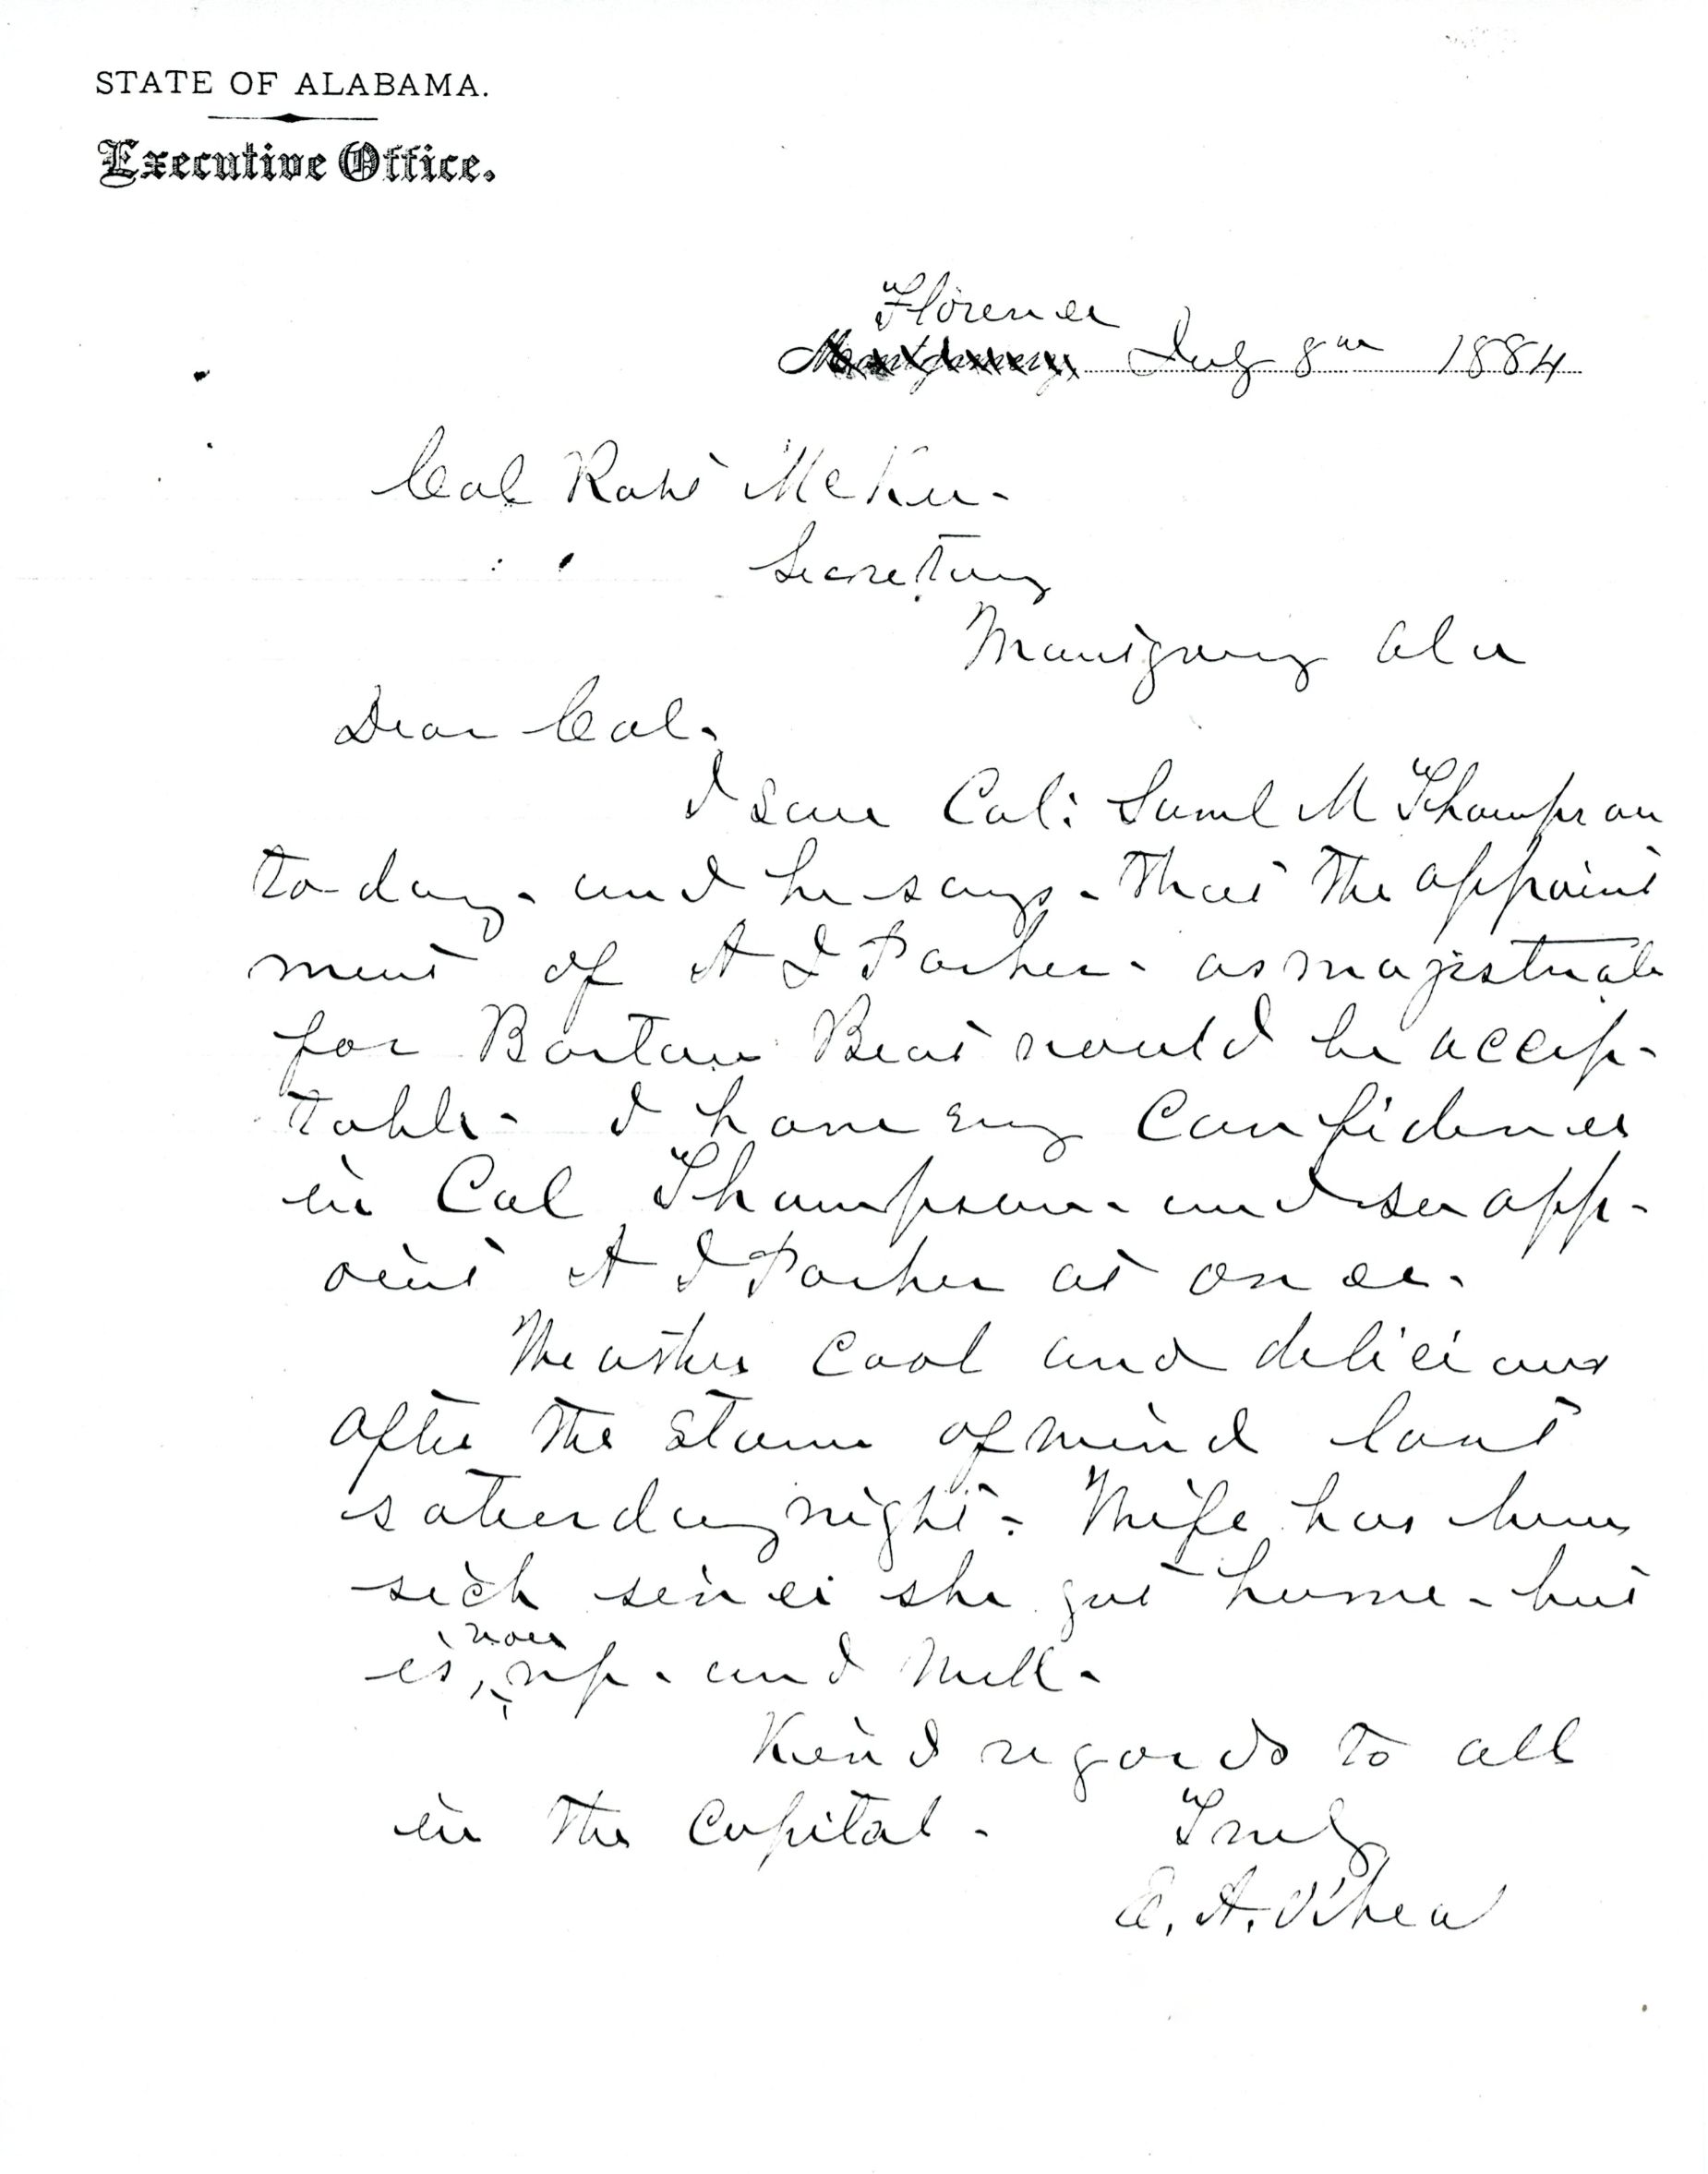 STATE OF ALABAMA.
Executive Office.
Florence
Montgomery July 8th 1884
Col Robt McKee-
Secretary
Montgomery Ala
Dear Col.
I saw Col: Saml M Thompson
to-day- and he says- that the appoint
ment of A J Parker- as magistrate
for Barton Beat would be accep-
table- I have ev'y confidence
in Col Thompson- and so app-
oint A J Parker at once.
Weather cool and delicious
after the storm of wind last
saturday night- Wife has been
sick since she got home- but
is now up- and well-
Kind regards to all
in the Capital- Truly
E. A. O'Neal